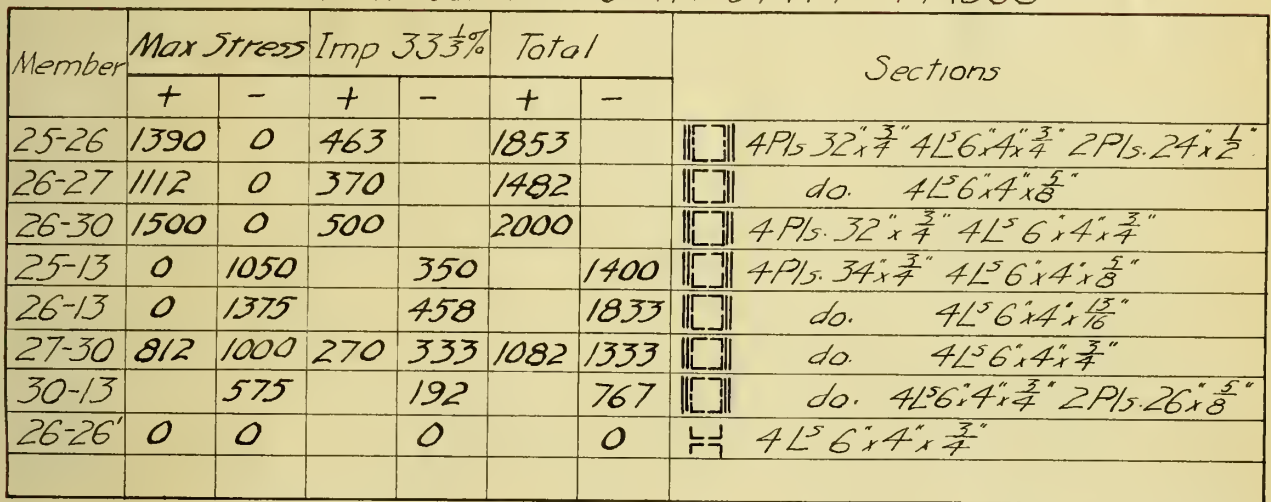 Member Max Stress Imp 33⅓% Total Sections
+ - + - + -
25-26 1390 0 463 1853 4Pls 32"x¾" 4Ls 6"x4"x¾" 2Pls. 24"x½"
26-27 1112 0 370 1482 do. 4Ls 6"x4"x⅝"
26-30 1500 0 500 2000 4Pls. 32"x¾" 4Ls 6"x4"x¾"
25-13 0 1050 350 1400 4Pls. 34"x¾" 4Ls 6"x4"x⅝"
26-13 0 1375 458 1833 do. 4Ls 6"x4"x13/16"
27-30 812 1000 270 333 1082 1333 do. 4Ls 6"x4"x¾"
30-13 575 192 767 do. 4Ls 6"x4"x¾" 2Pls. 26"x⅝"
26-26' 0 0 0 0 4Ls 6"x4"x¾"